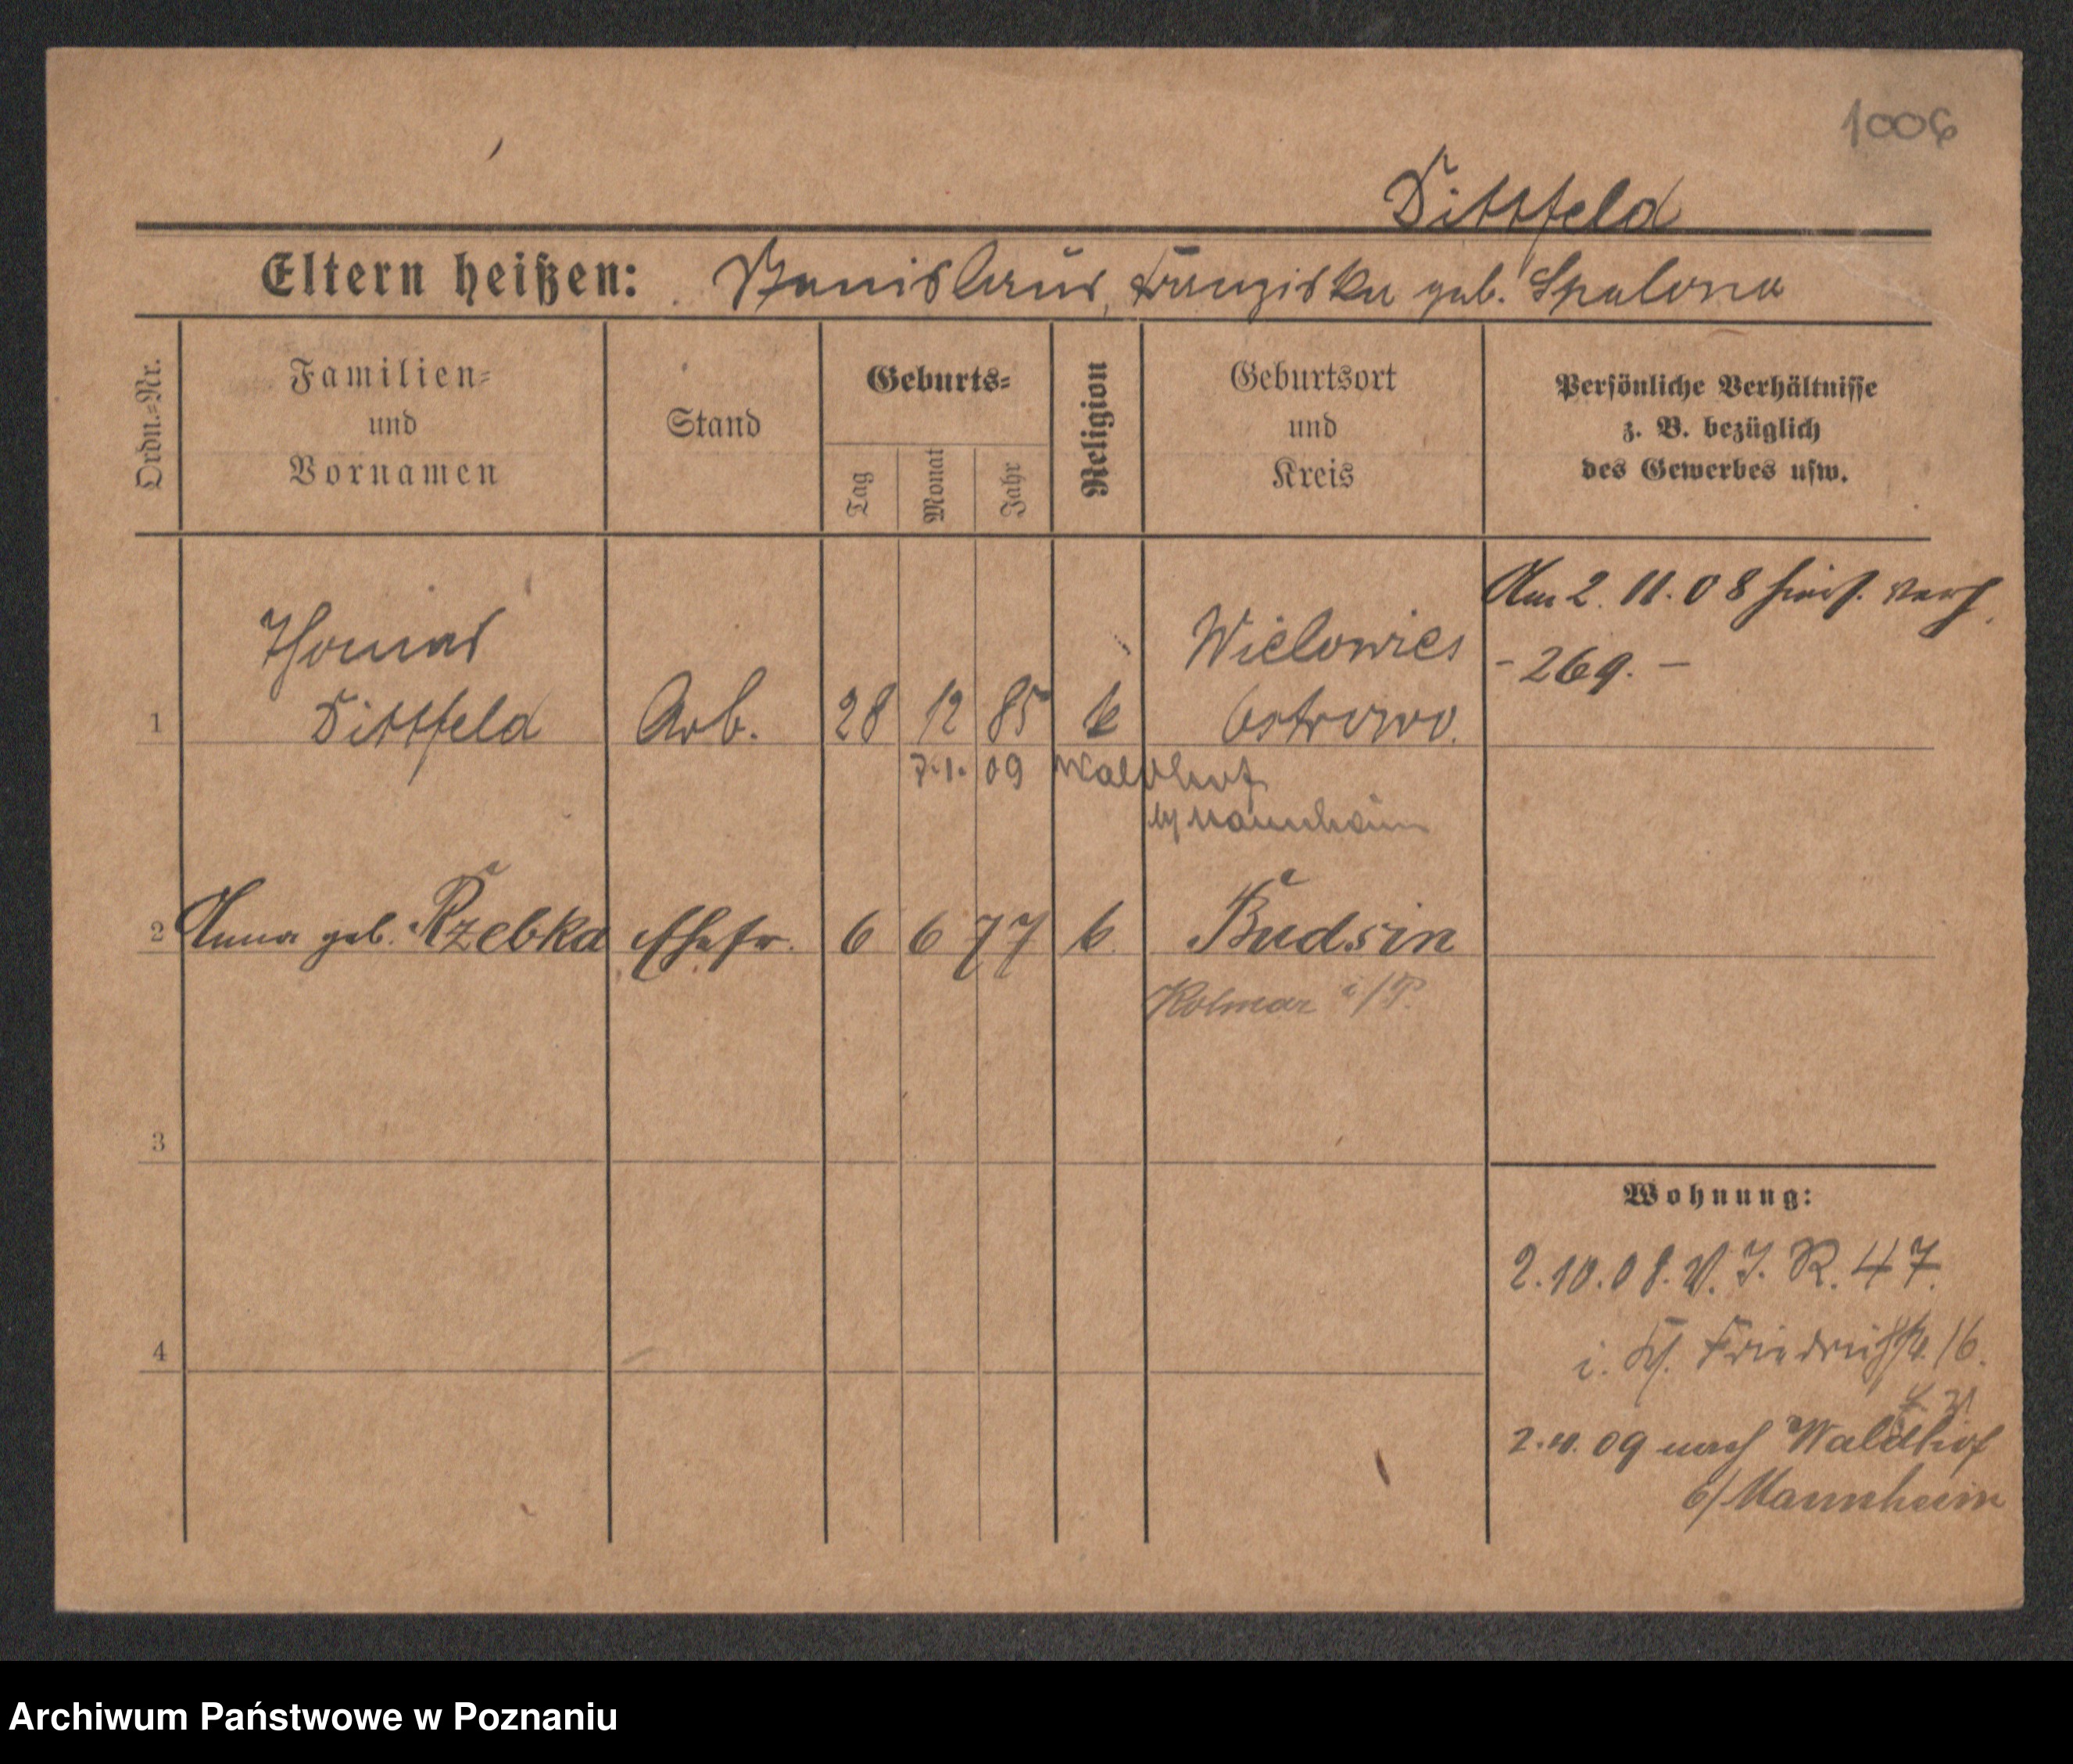 1006
Dittfeld
Eltern heißen: Stanislaus, Franziska geb. Spalona
Ordn.-Nr.
Familien-
und
Vornamen
Stand
Geburts-
Tag
Monat
Jahr
Religion
Geburtsort
und
Kreis
Persönliche Verhältnisse
z. B. bezüglich
des Gewerbes usw.
Am 2. 11. 08
- 269. -
Thomas
Wielowies
1 Dittfeld Arb. 28 12 85 k Ostrowo.
7.1. 09 Waldhof
b/ Mannheim
2 Anna geb. Rzebka Ehefr. 6 6 77 k. Budsin
Kolmar i/P.
3
4
Wohnung:
2.10.08. V. J. R. 47.
i. Friedrichstr. 16.
09 nach Waldhof
b/ Mannheim
Archiwum Państwowe w Poznaniu